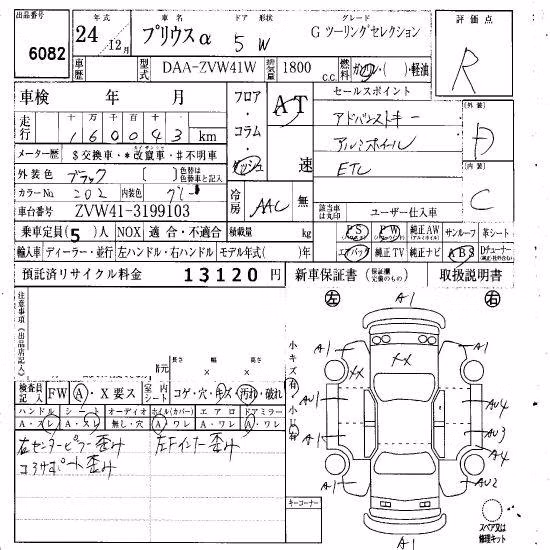 出品番号 6082
年式 24 12月
車名 プリウスα
ドア 形状 5 W
グレード G ツーリングセレクション
評価点 R
車歴
型式 DAA-ZVW41W
排気量 1800 c.c.
燃料 ガソリン・( )・軽油
車検 年 月
フロア・コラム・ダッシュ
AT 速
セールスポイント
アドバンストキー
アルミホイール
ETC
外装 D
内装 C
走行 十万 万 千 百 十 一
1 6 0 0 4 3 km
メーター歴 $交換車・*改竄車・#不明車
外装色 ブラック [ ] 色替は色替車と記入
カラーNo. 202 内装色 グレー
冷房 AAC 無
該当車は丸印
ユーザー仕入車
車台番号 ZVW41-3199103
乗車定員(5)人 NOX 適合・不適合 積載量 kg
PS PW 純正AW サンルーフ 革シート
輸入車 ディーラー・並行 左ハンドル・右ハンドル モデル年式( )年
エアバック 純正TV 純正ナビ ABS Dチューナー
預託済リサイクル料金 13120円
新車保証書 (保証欄記載のもの) 取扱説明書
注意事項(出品店記入)
左 右
小キズ有 小凹有
長さ 幅 高さ
検査員記入 FW A・X要ス 室内シート コゲ・穴・キズ・汚れ・破れ
ハンドル シート オーディオ ホイル(カバー) エアロ ドアミラー
A・スレ A・スレ 無し・穴 A・ワレ A・ワレ A・ワレ
右センターピラー歪み
コアサポート歪み
左Fインナー歪み
キーコーナー
A1
A1 XX XX A1
AU1 AU4
A1 AU3
A1 AU2
A1
スペア又は修理キット